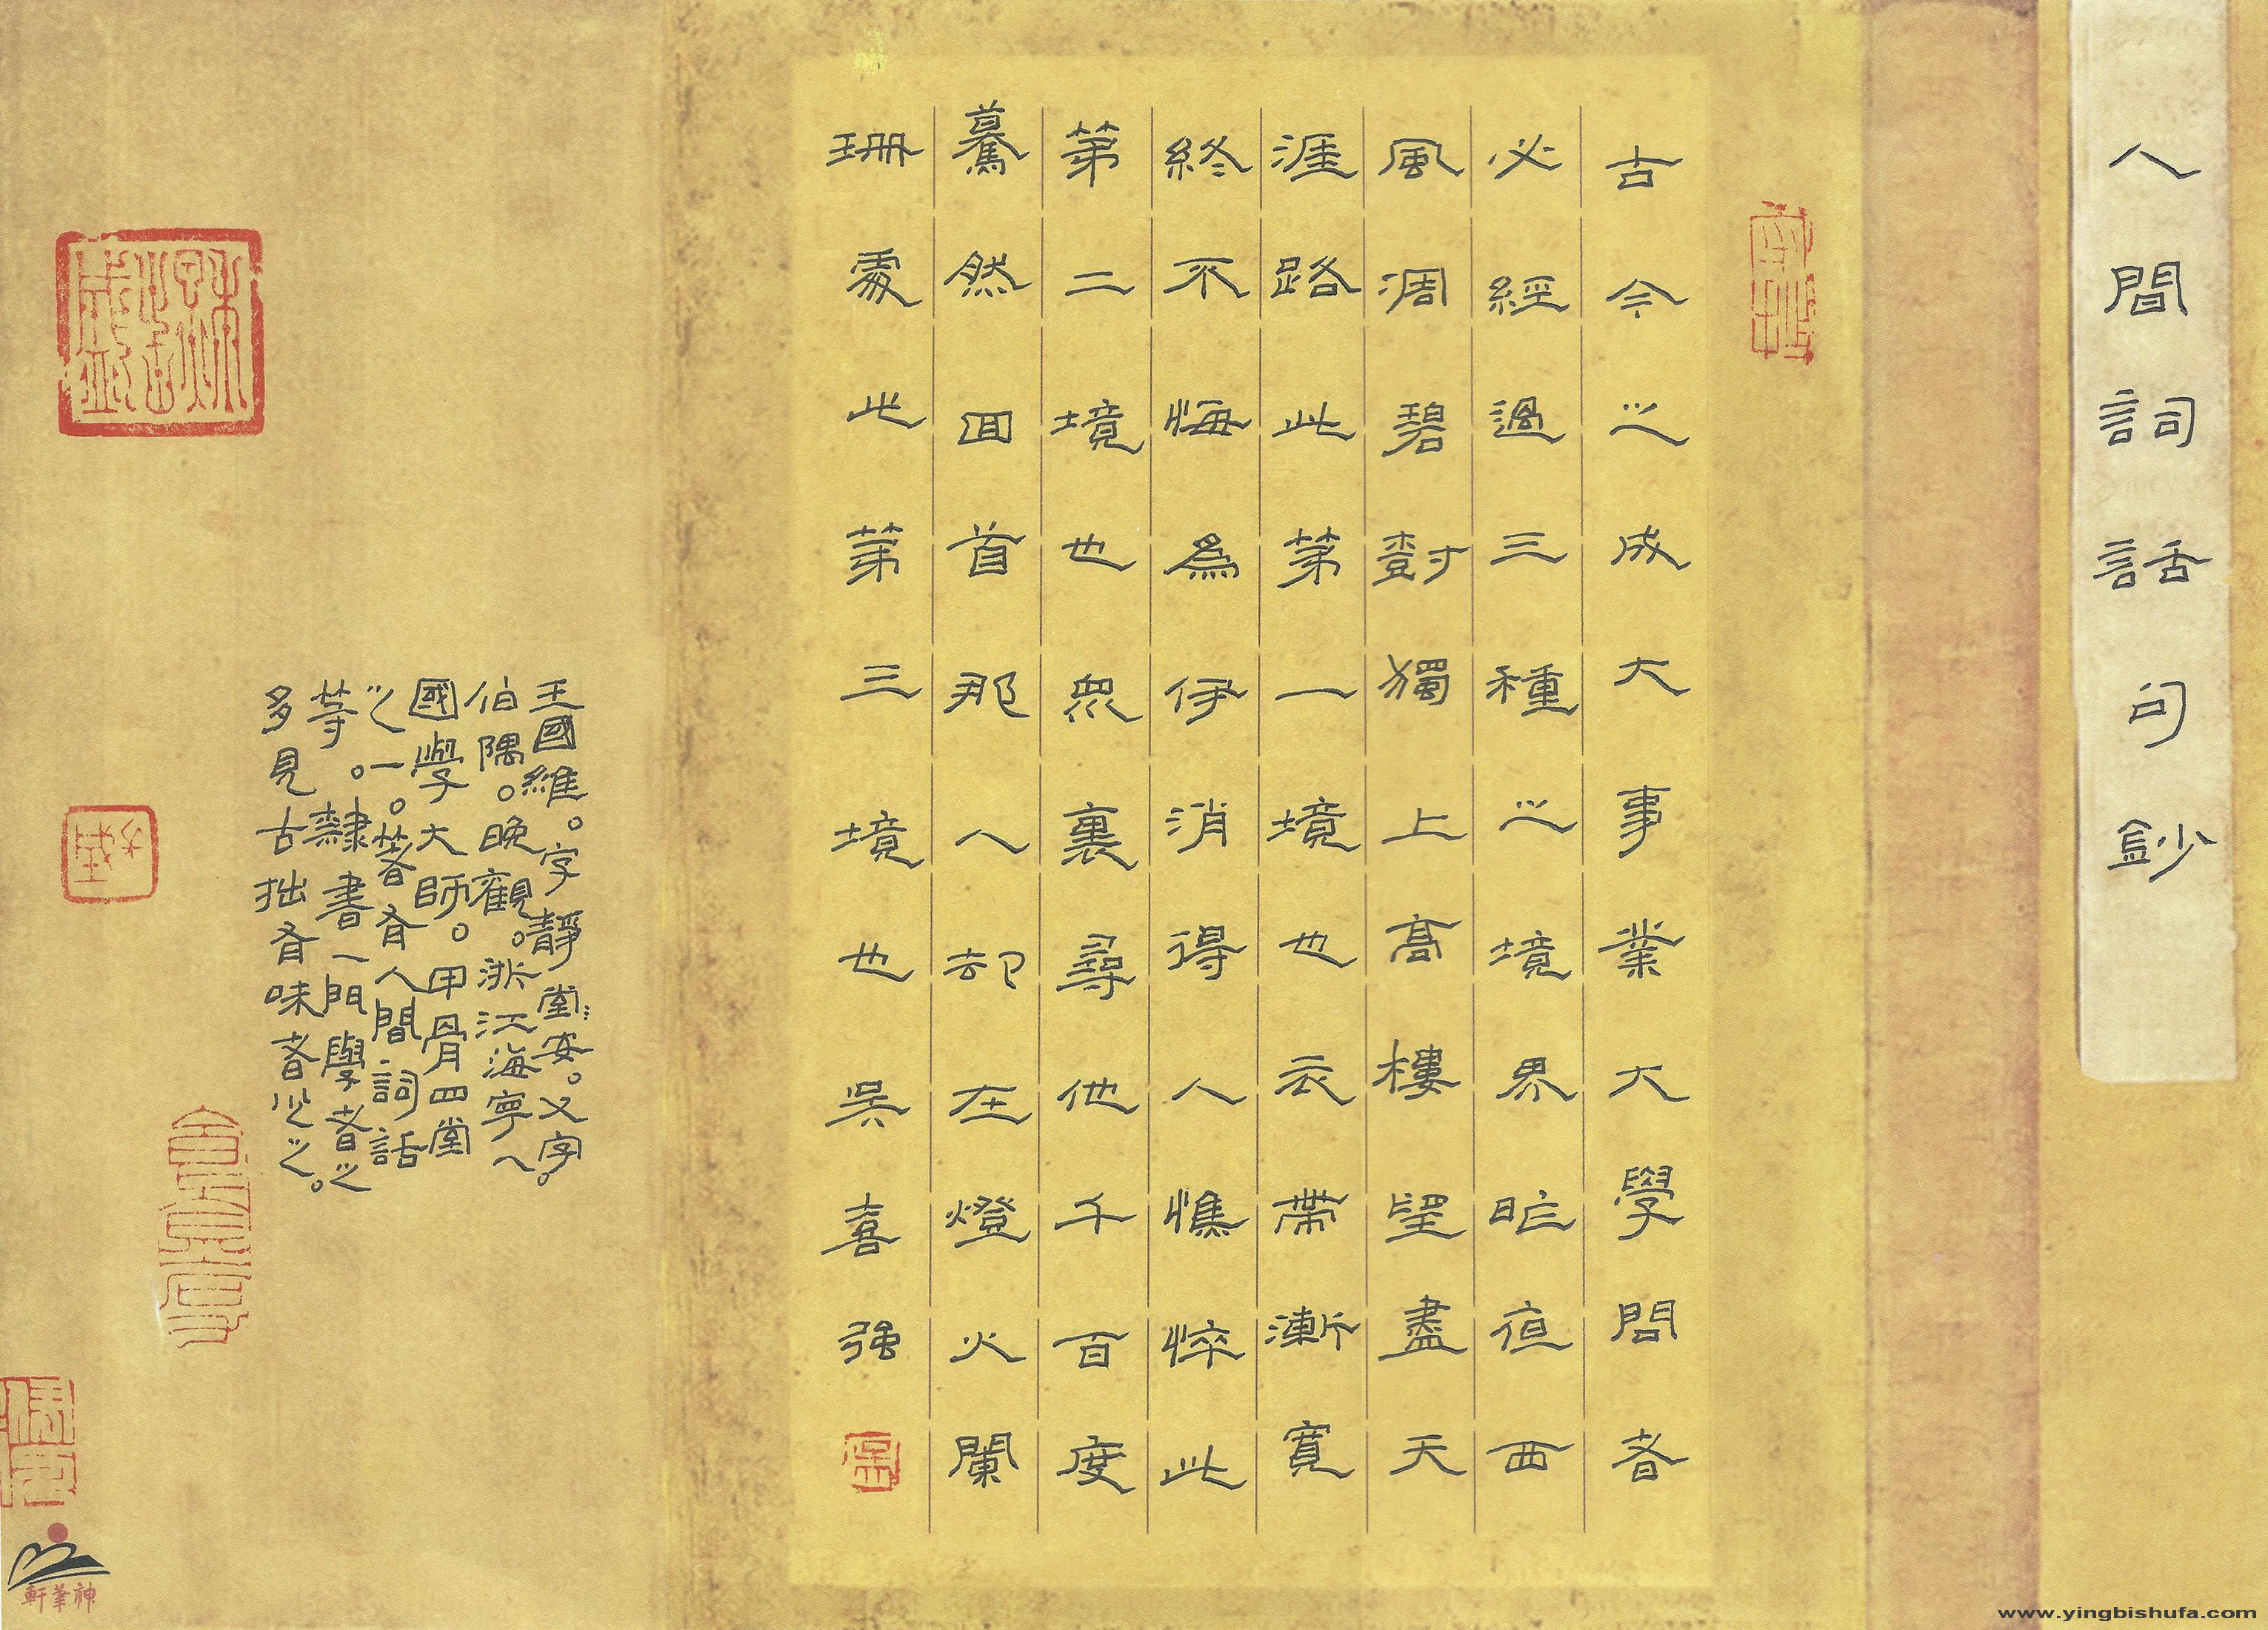 人間詞話句鈔
古今之成大事業大學問者
必經過三種之境界昨夜西
風凋碧樹獨上高樓望盡天
涯路此第一境也衣帶漸寬
終不悔為伊消得人憔悴此
第二境也眾裏尋他千百度
驀然回首那人却在燈火闌
珊處此第三境也吳喜强
王國維。字靜堂安。又字。
伯隅。晚觀。浙江海寧人
國學大師。甲骨四堂
之一。著有人間詞話
等。隸書一門學者之
多見古拙有味者少之。
神筆軒
www.yingbishufa.com